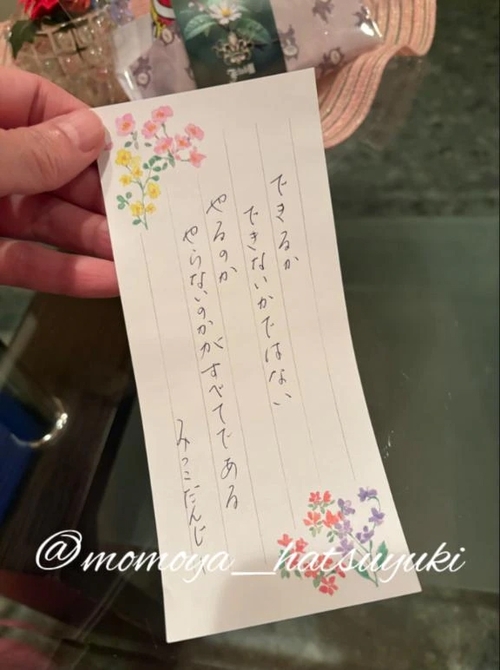 できるか
できないかではない
やるのか
やらないのかがすべてである
みっこたんじ
@momoya__hatsuyuki